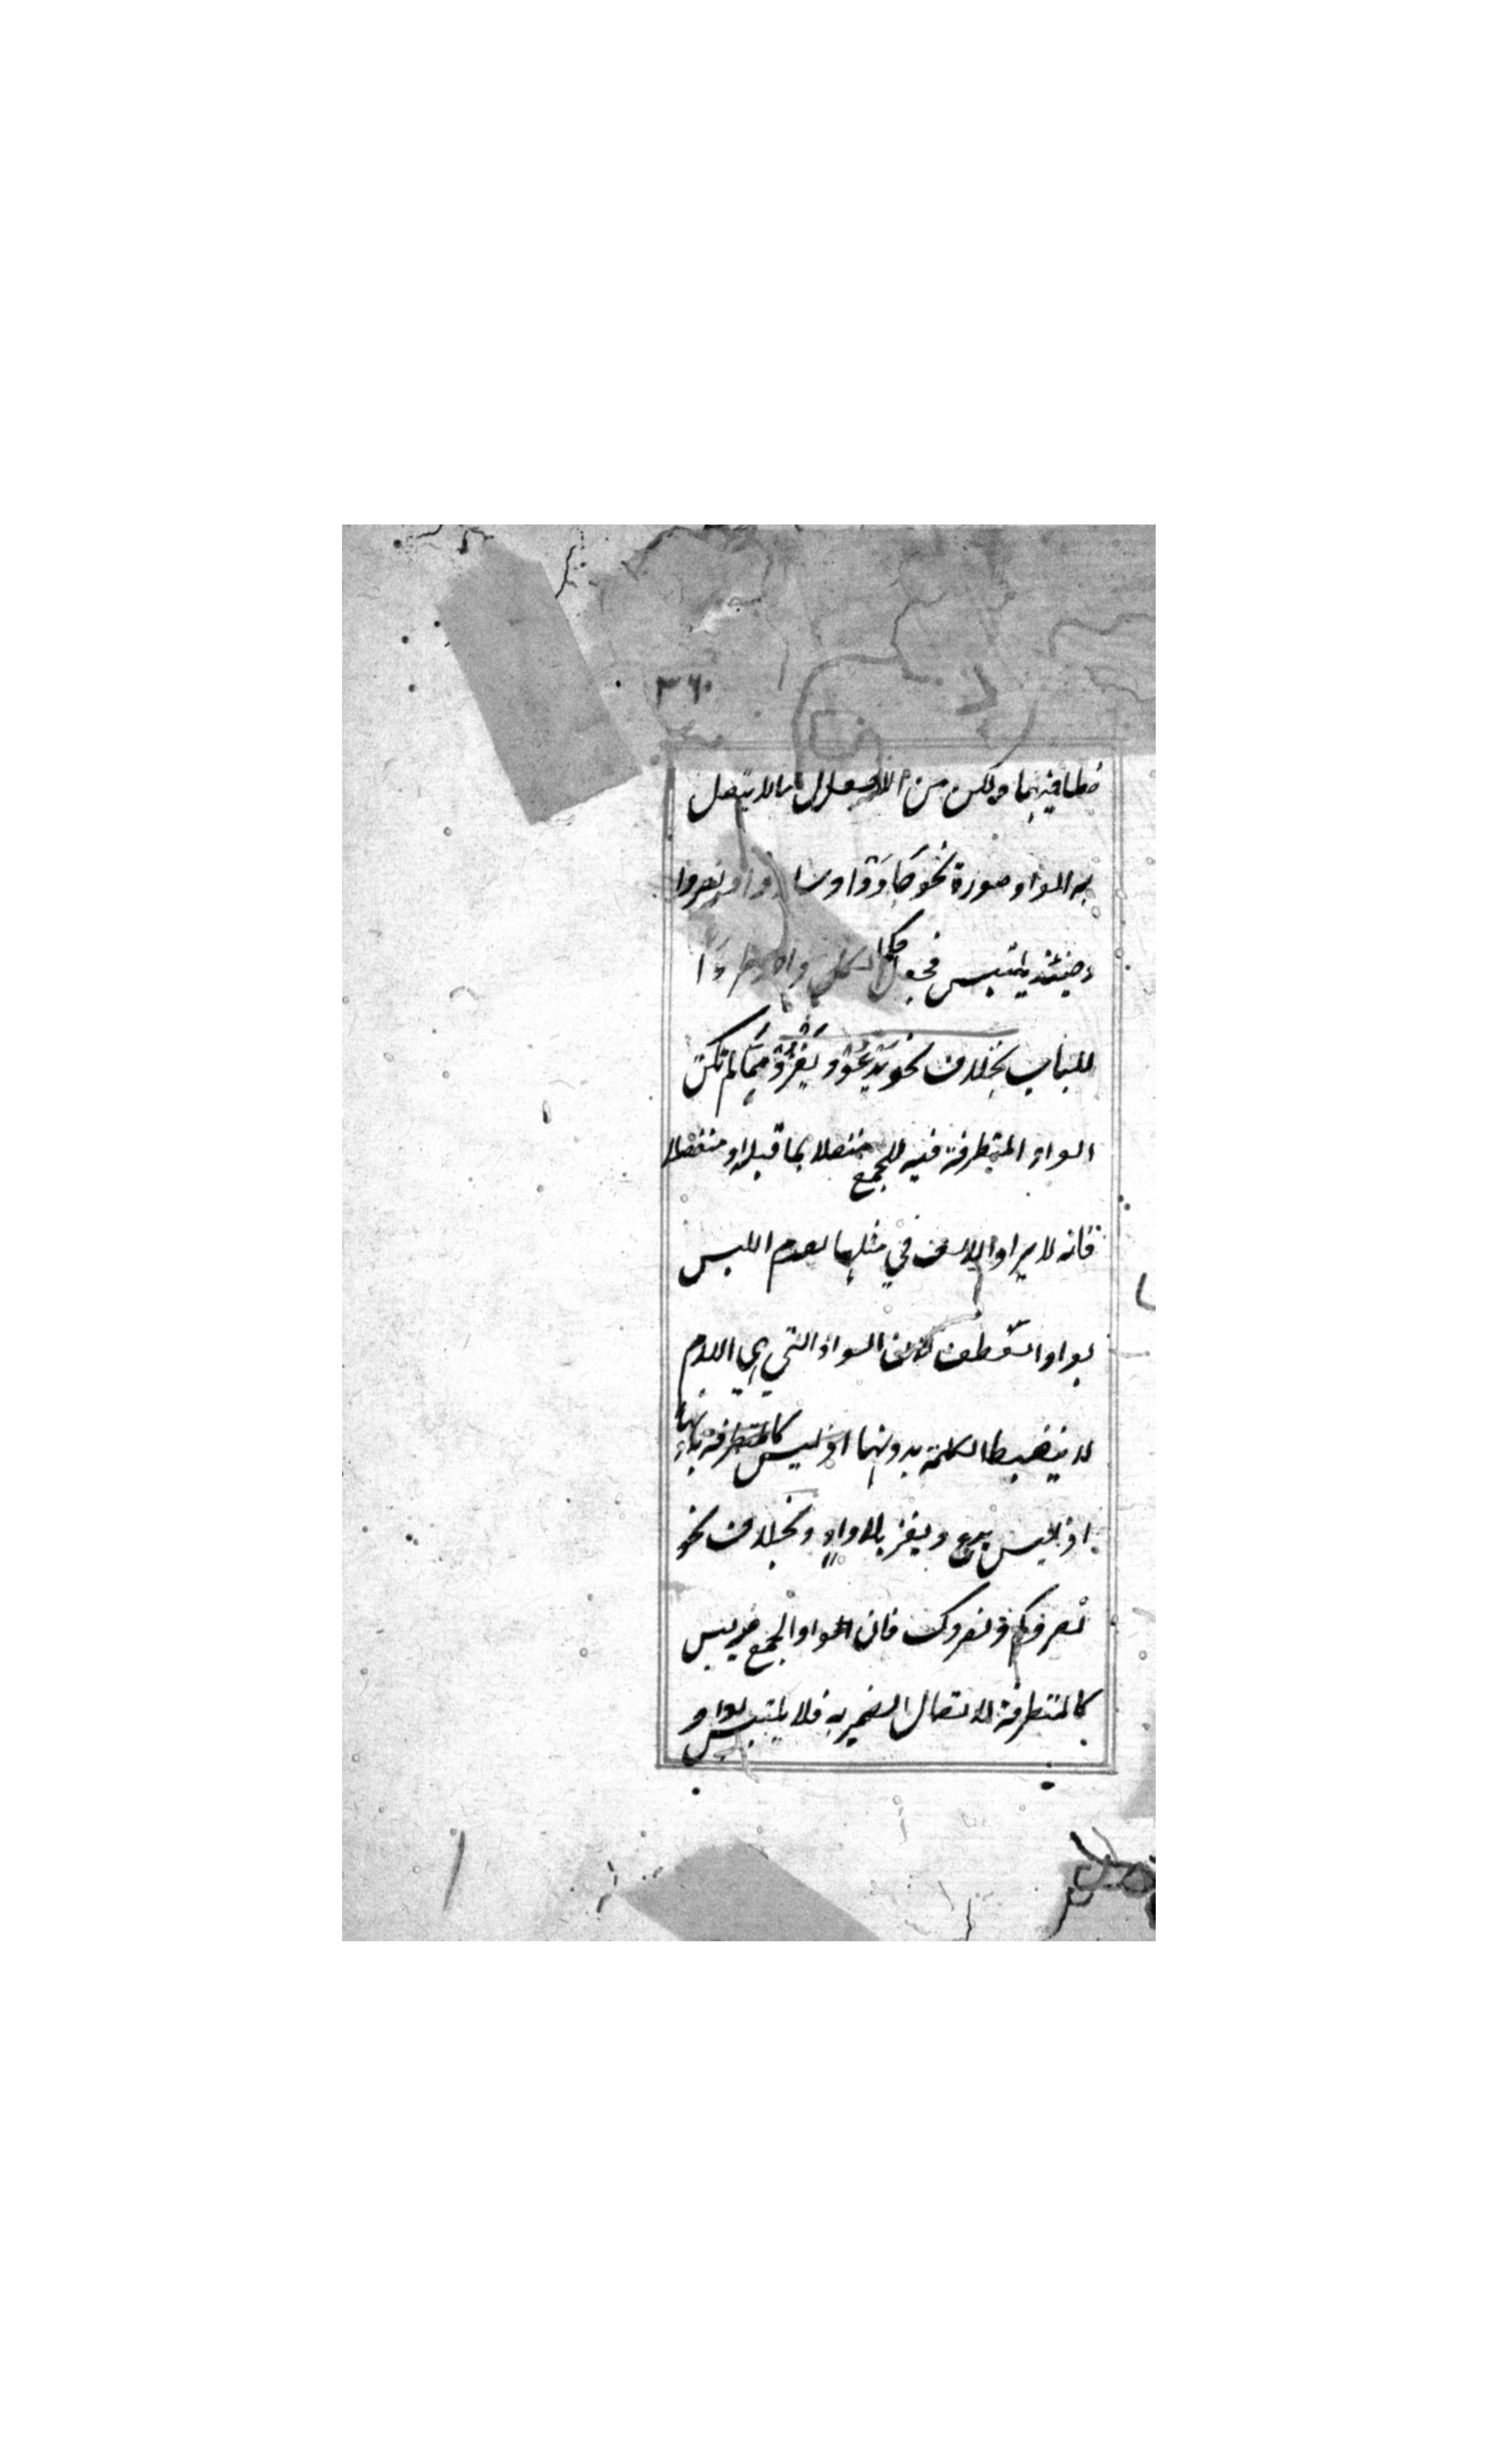 ٣٦٠
خطا فيهما ولكن من الافعال ما لا يتصل
به الواو صورة نحو جاؤوا و
وحينئذ يلتبس فجعل حكم الكل واحد طردا
للباب بخلاف نحو يدعو و يغزو مما لم تكن
الواو المتطرفة فيه للجمع متصلا بما قبله او منفصلا
فانه لا يراد الالف في مثلها لعدم اللبس
بواو العطف لان الواو التي هي اللام
لا ينضبط الكلمة بدونها اذ ليس كالمتطرفة
اذ ليس يدع و يغز بلا واو و بخلاف نحو
نصروكم و نصروك فان الواو الجمع ليس
كالمتطرفة لاتصال الضمير به فلا يلتبس بواو